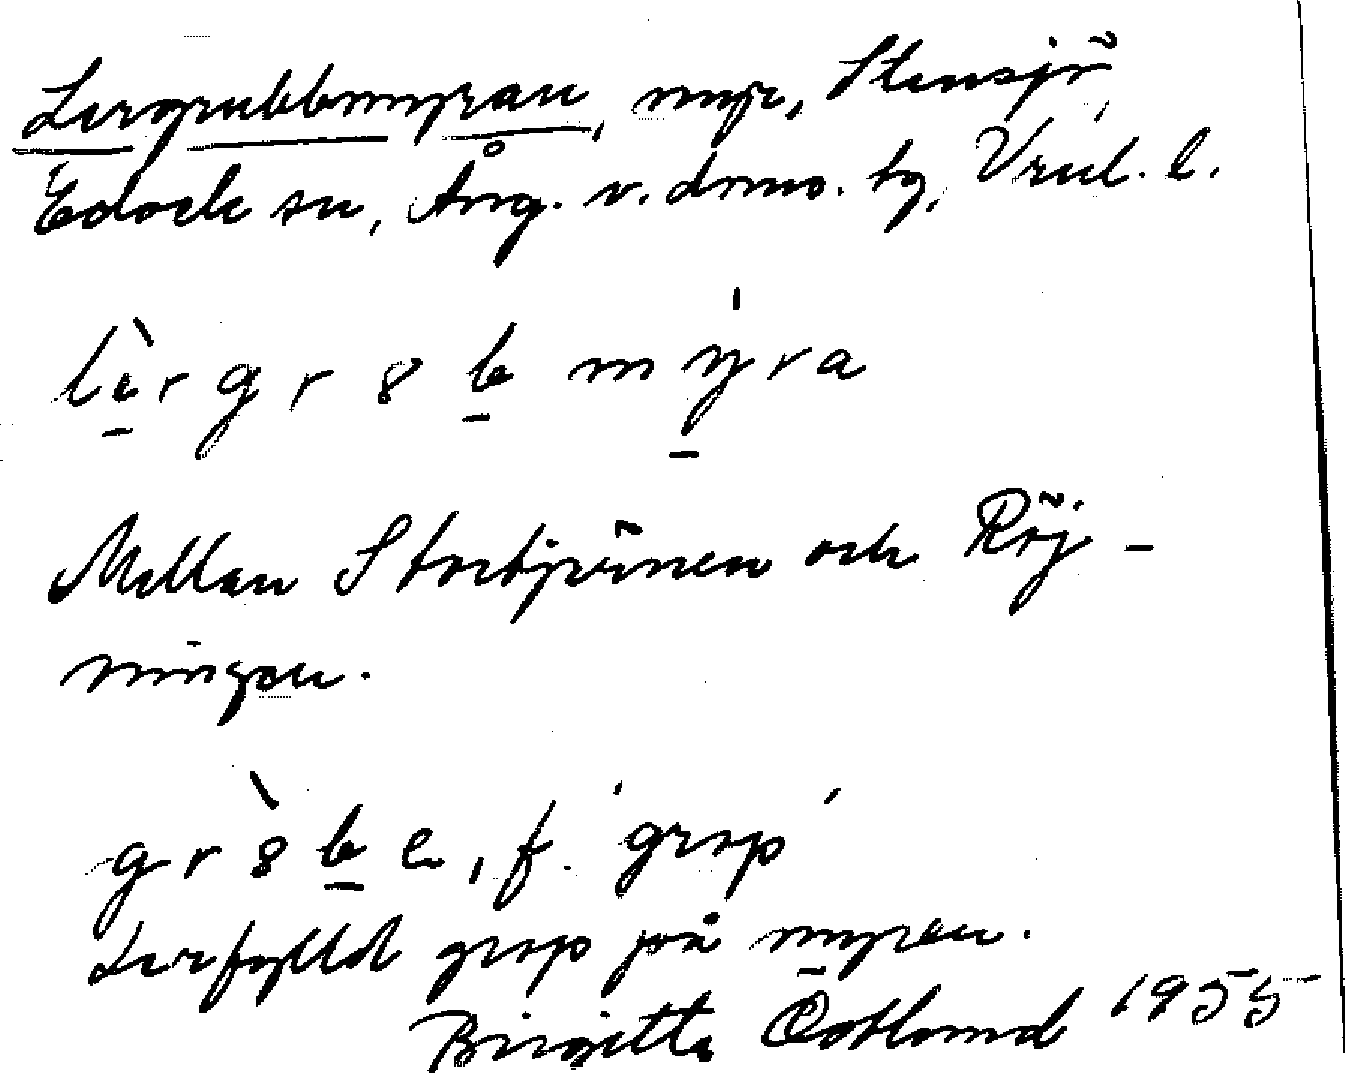 Lergrubbmyran, myr, Stensjö,
Edsele sn, Ång. v. dms. tg, Vnl. l.
lèrgr8bmýra
Mellan Stortjärnen och Röj-
ningen.
gr8̀be, f. 'grop'
Lerfylld grop på myran.
Birgitta Östlund 1955